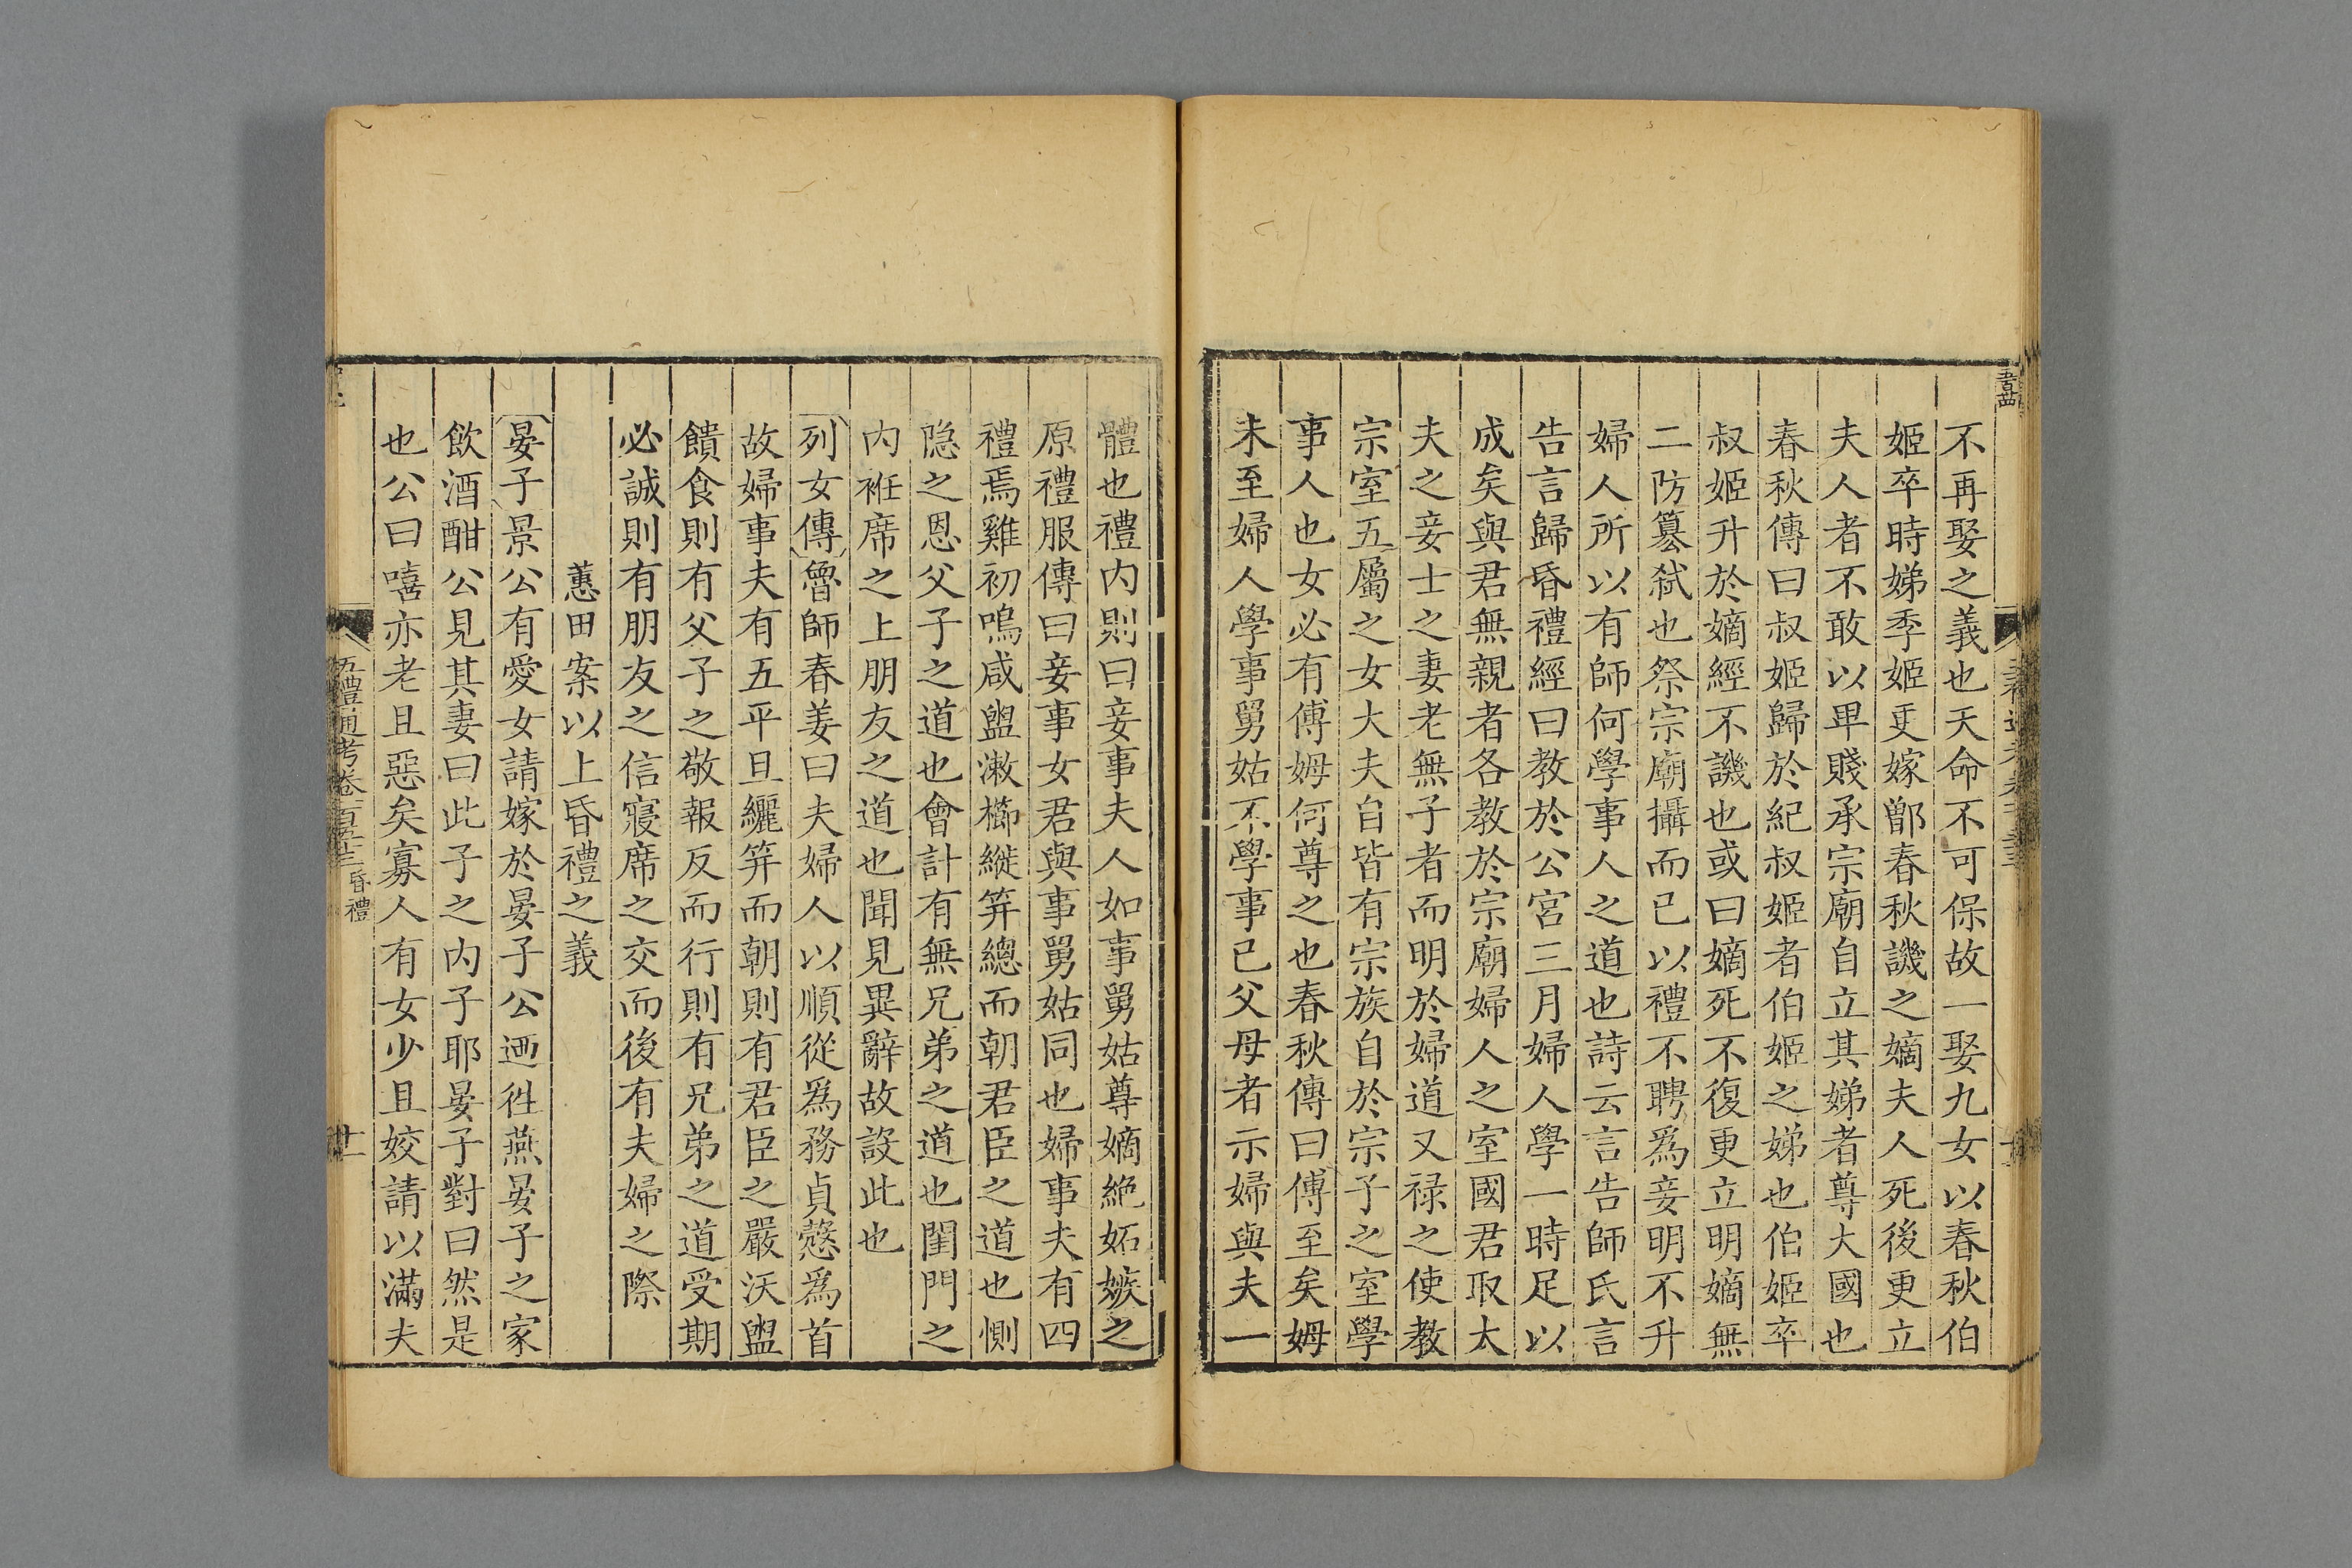 不再娶之義也天命不可保故一娶九女以春秋伯
姬卒時娣季姬更嫁鄫春秋譏之嫡夫人死後更立
夫人者不敢以卑賤承宗廟自立其娣者尊大國也
春秋傳曰叔姬歸於紀叔姬者伯姬之娣也伯姬卒
叔姬升於嫡經不譏也或曰嫡死不復更立明嫡無
二防篡弑也祭宗廟攝而已以禮不聘爲妾明不升
婦人所以有師何學事人之道也詩云言告師氏言
告言歸昏禮經曰教於公宮三月婦人學一時足以
成矣與君無親者各教於宗廟婦人之室國君取大
夫之妾士之妻老無子者而明於婦道又禄之使教
宗室五屬之女大夫自皆有宗族自於宗子之室學
事人也女必有傅姆何尊之也春秋傳曰傅至矣姆
未至婦人學事舅姑不學事已父母者示婦與夫一
體也禮内則曰妾事夫人如事舅姑尊嫡絶妬嫉之
原禮服傳曰妾事女君與事舅姑同也婦事夫有四
禮焉雞初鳴咸盥漱櫛縰笄總而朝君臣之道也惻
隐之恩父子之道也會計有無兄弟之道也閨門之
内袵席之上朋友之道也聞見異辭故設此也
列女傳魯師春姜曰夫婦人以順從爲務貞慤爲首
故婦事夫有五平旦纚笄而朝則有君臣之嚴沃盥
饋食則有父子之敬報反而行則有兄弟之道受期
必誠則有朋友之信寢席之交而後有夫婦之際
蕙田案以上昏禮之義
晏子景公有愛女請嫁於晏子公迺徃燕晏子之家
飲酒酣公見其妻曰此子之内子耶晏子對曰然是
也公曰嘻亦老且惡矣寡人有女少且姣請以滿夫
五禮通考卷一百五十三 昏禮
十一